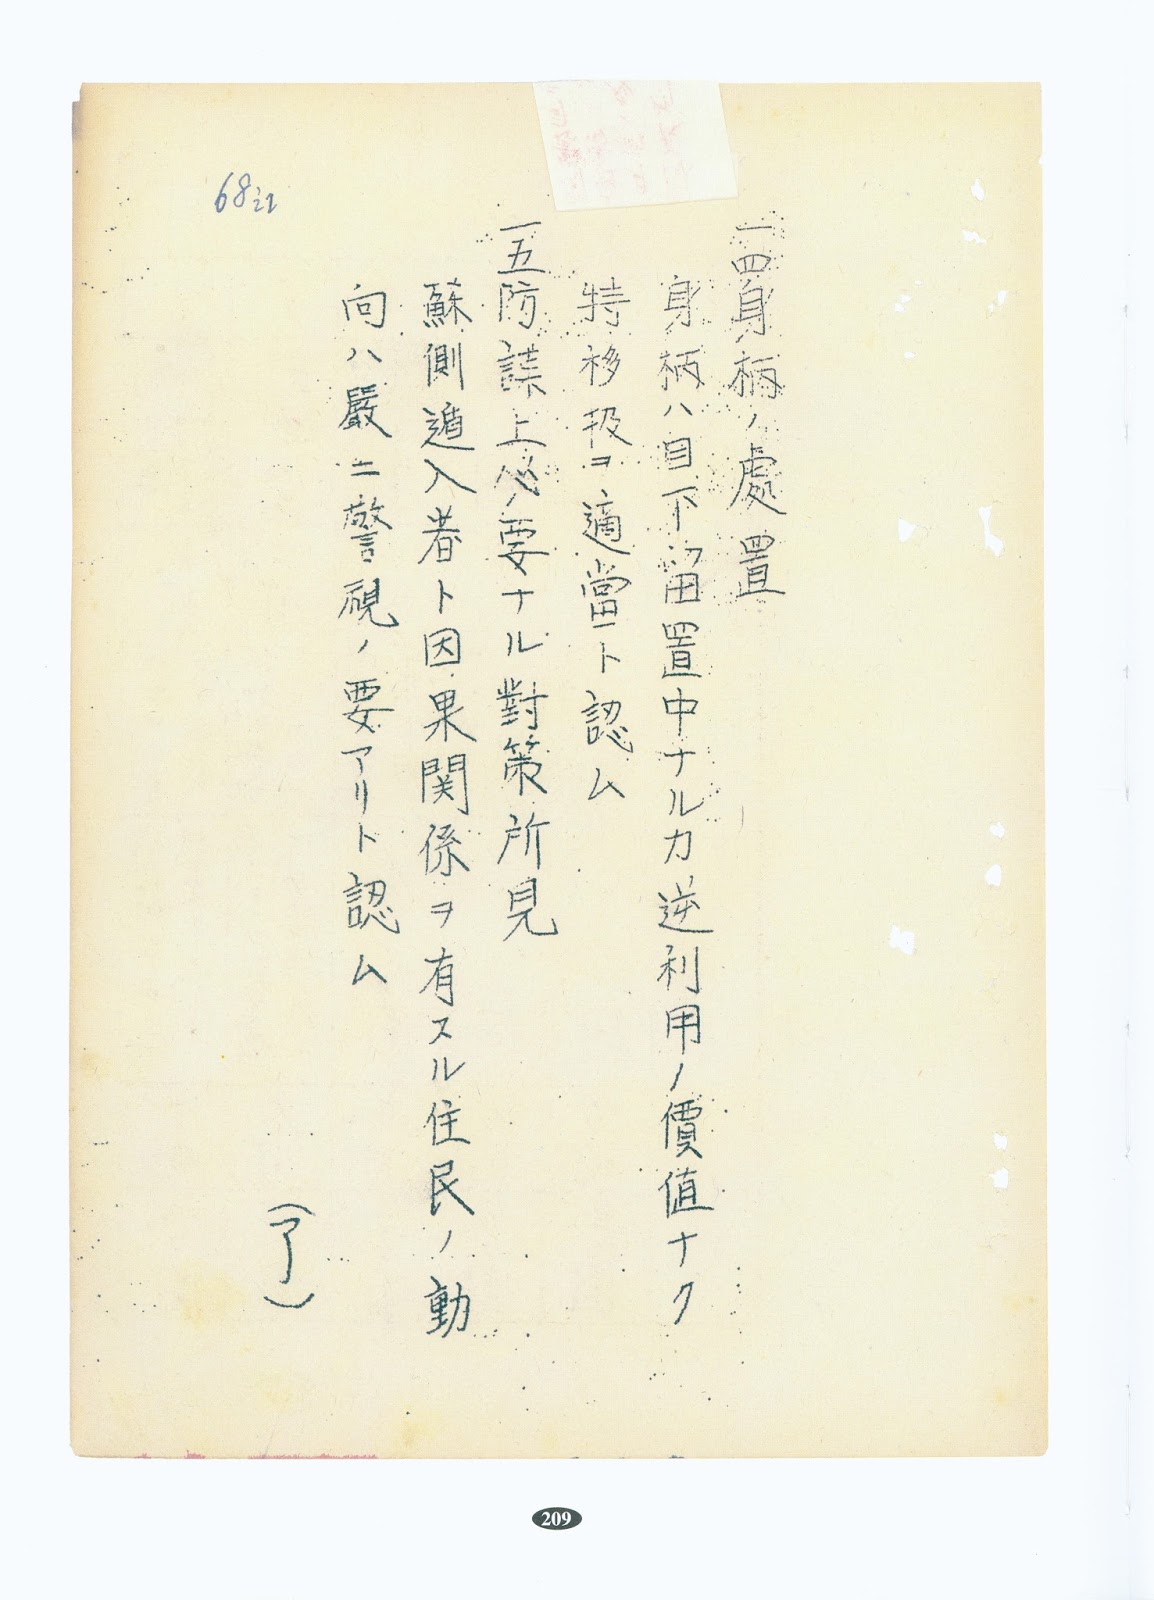 68
一四身柄ノ處置
身柄ハ目下留置中ナルカ逆利用ノ價値ナク
特移扱ヲ適當ト認ム
一五防諜上必要ナル對策所見
蘇側遁入者ト因果関係ヲ有スル住民ノ動
向ハ嚴ニ警視ノ要アリト認ム
(了)
209